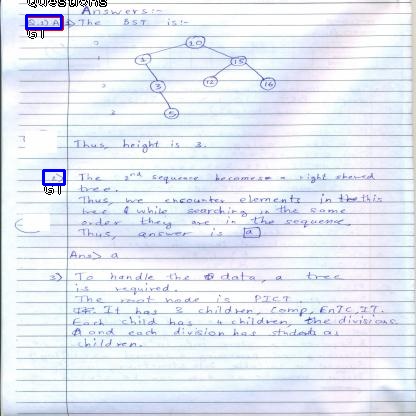 Questions
Answers:-
Q.1) A) The BST is:-
GT
0
10
1
1
15
2
3
12
16
3
5
Thus, height is 3.
2) The 2nd sequence becomes a right skewed
GT
tree.
Thus, we encounter elements in the this
tree & while searching in the same
order they are in the sequence.
Thus, answer is a
Ans> a
3) To handle the data, a tree
is required.
The root node is PICT.
It has 3 children, Comp, EnTC, IT.
Each child has 4 children, the divisions
and each division has students as
children.